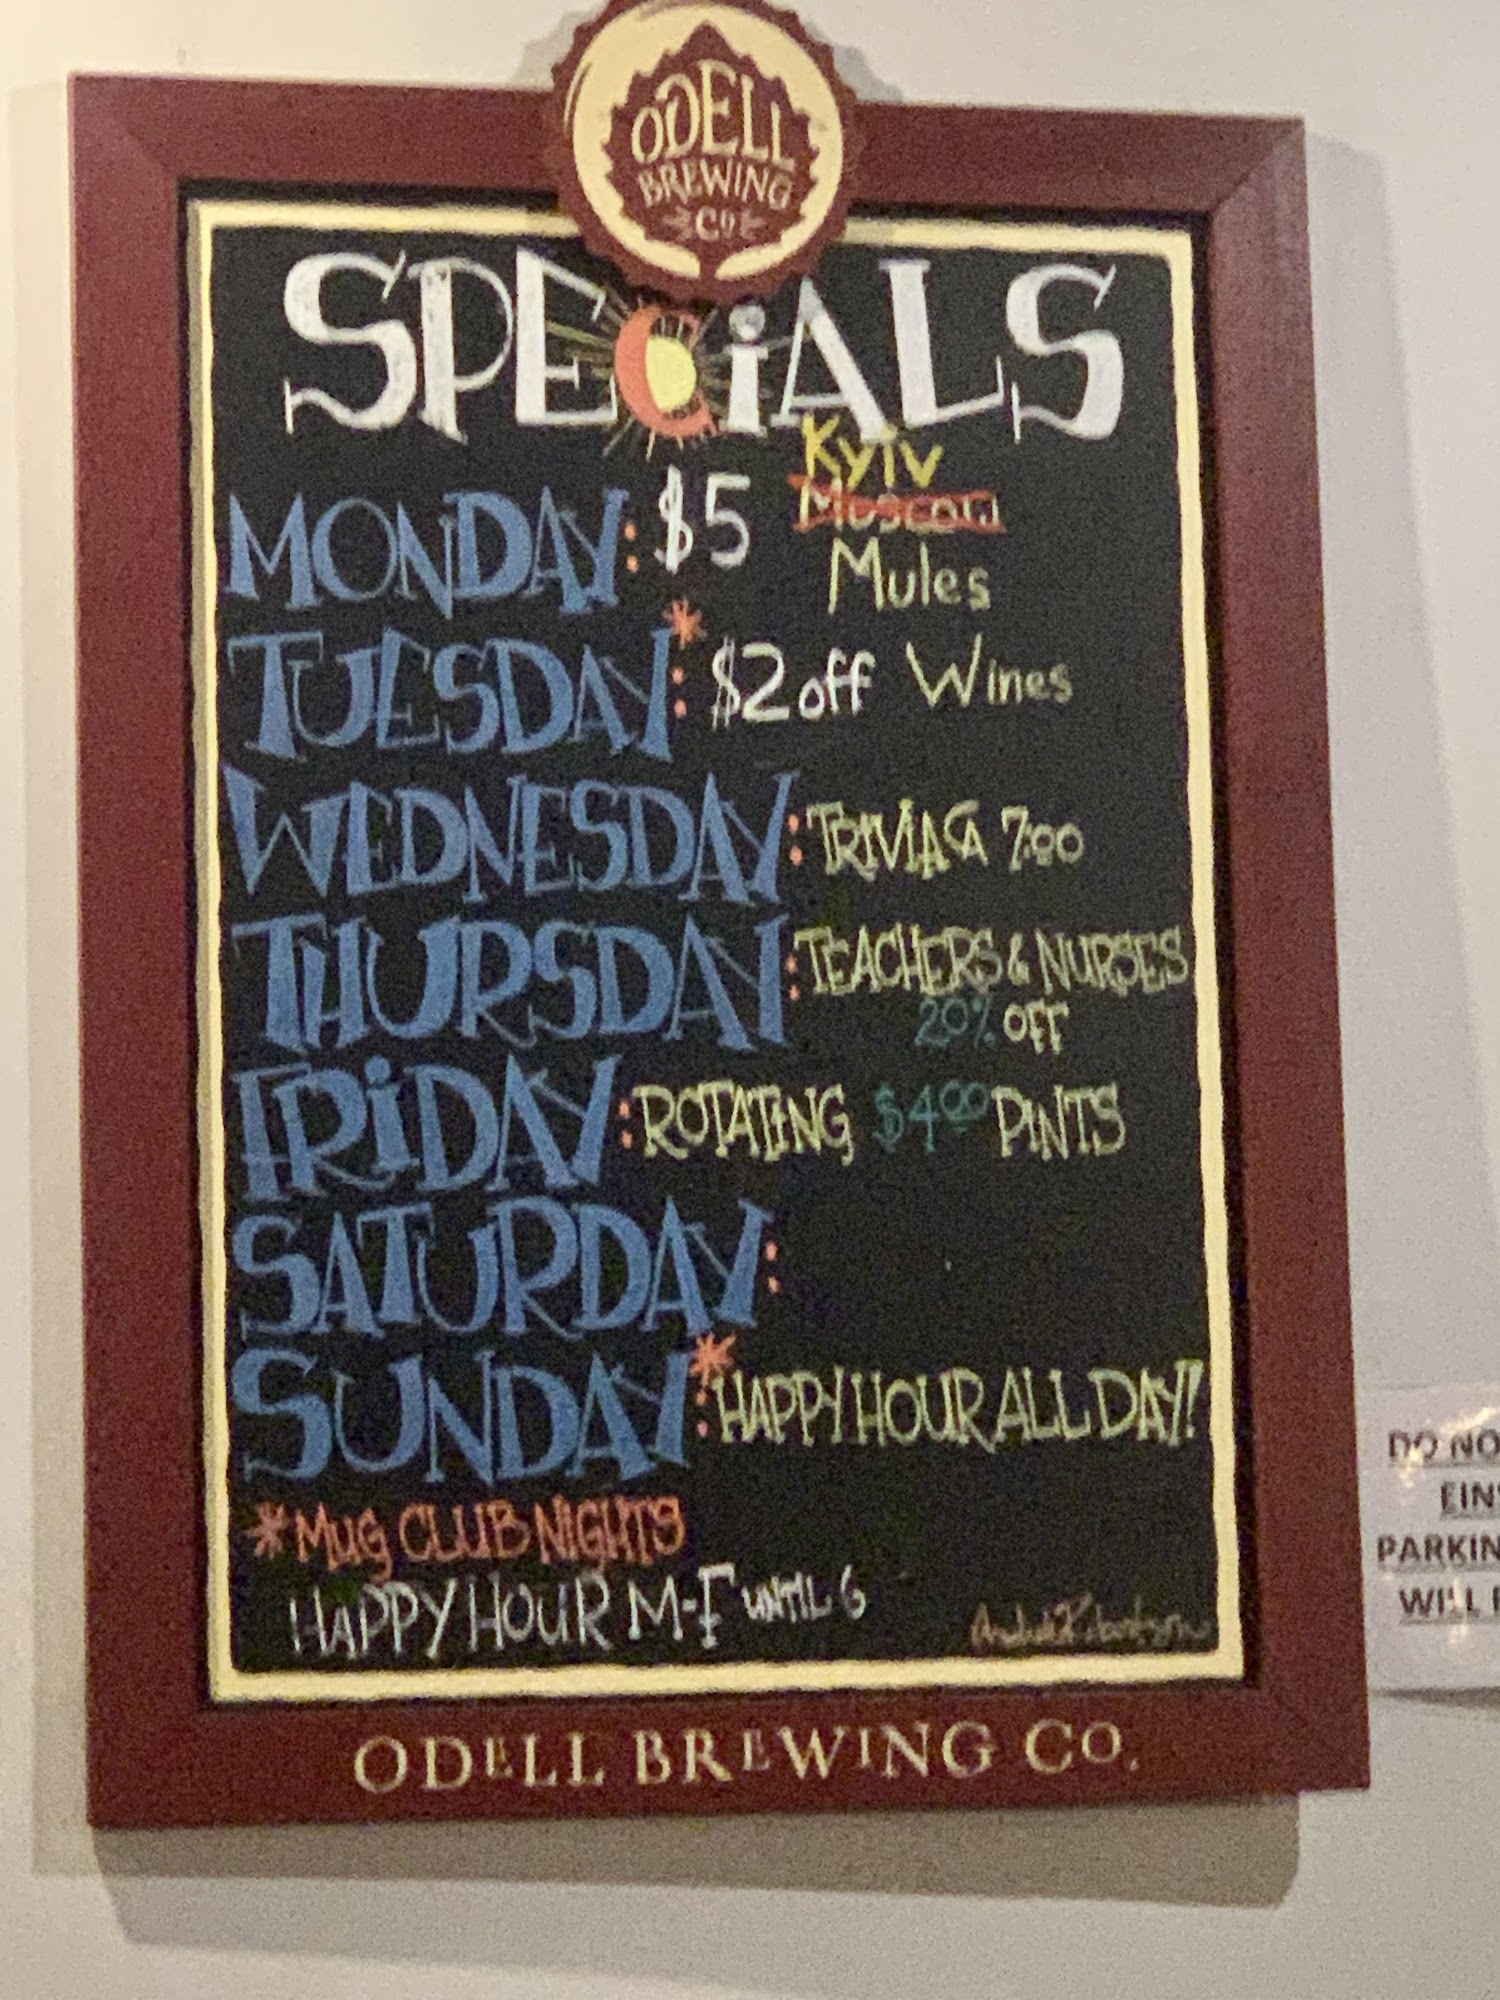 ODELL
BREWING
CO
SPECiALS
MONDAY: $5 Kyiv
Moscow
Mules
TUESDAY*: $2 off Wines
WEDNESDAY: TRIVIA @ 7:00
THURSDAY: TEACHERS & NURSES
20% OFF
FRiDAY: ROTATING $4.00 PINTS
SATURDAY:
SUNDAY*: HAPPY HOUR ALL DAY!
*MUG CLUB NIGHTS
HAPPY HOUR M-F UNTIL 6
ODELL BREWING CO.
DO NO
EIN
PARKIN
WILL